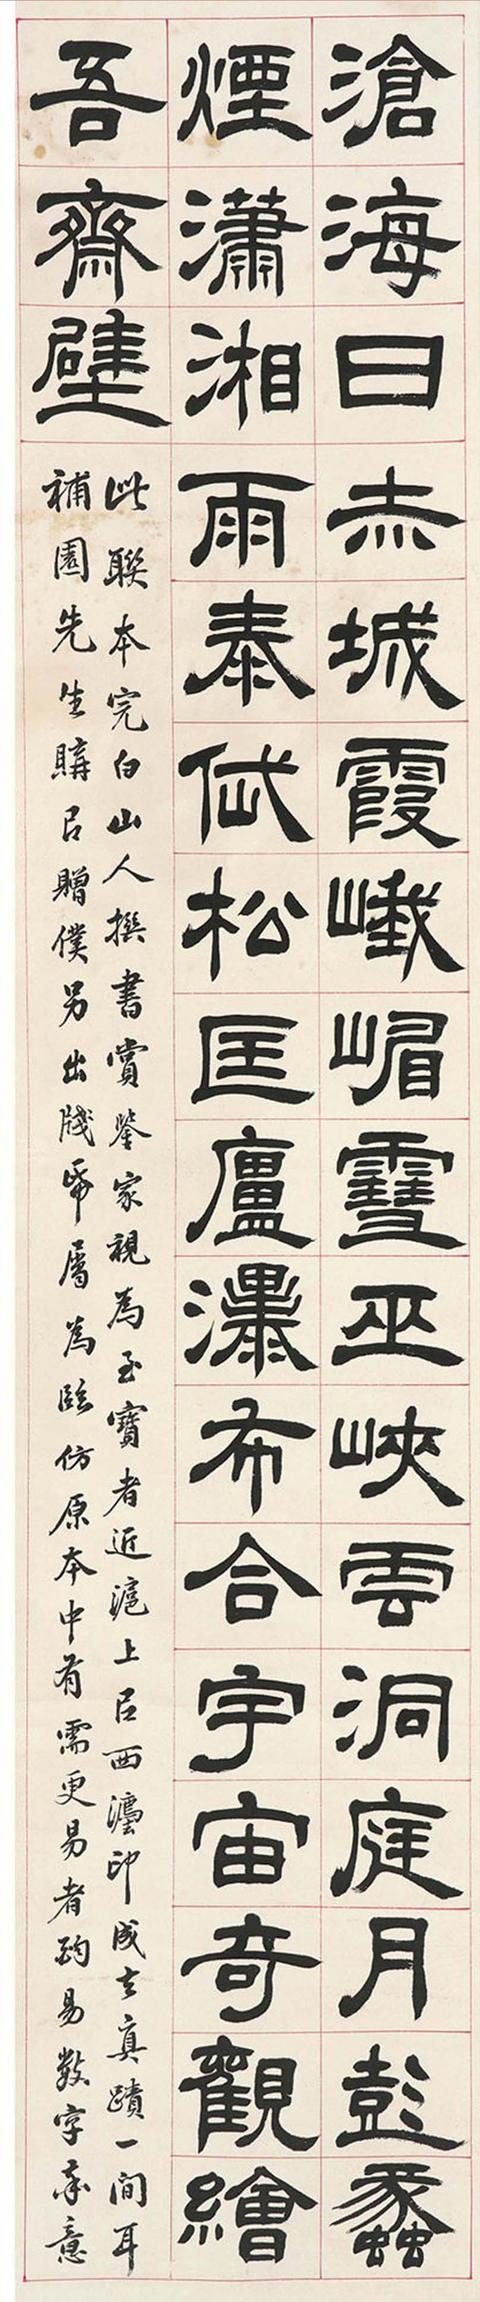 滄海日赤城霞峨嵋雪巫峽雲洞庭月彭蠡
煙瀟湘雨泰岱松匡廬瀑布合宇宙奇觀繪
吾齋壁
此聯本完白山人撰書賞鑒家視為至寶者近滬上㠯西灋印成去真蹟一間耳
補園先生購㠯贈僕另出牋帋屬為臨仿原本中有需更易者酌易數字意